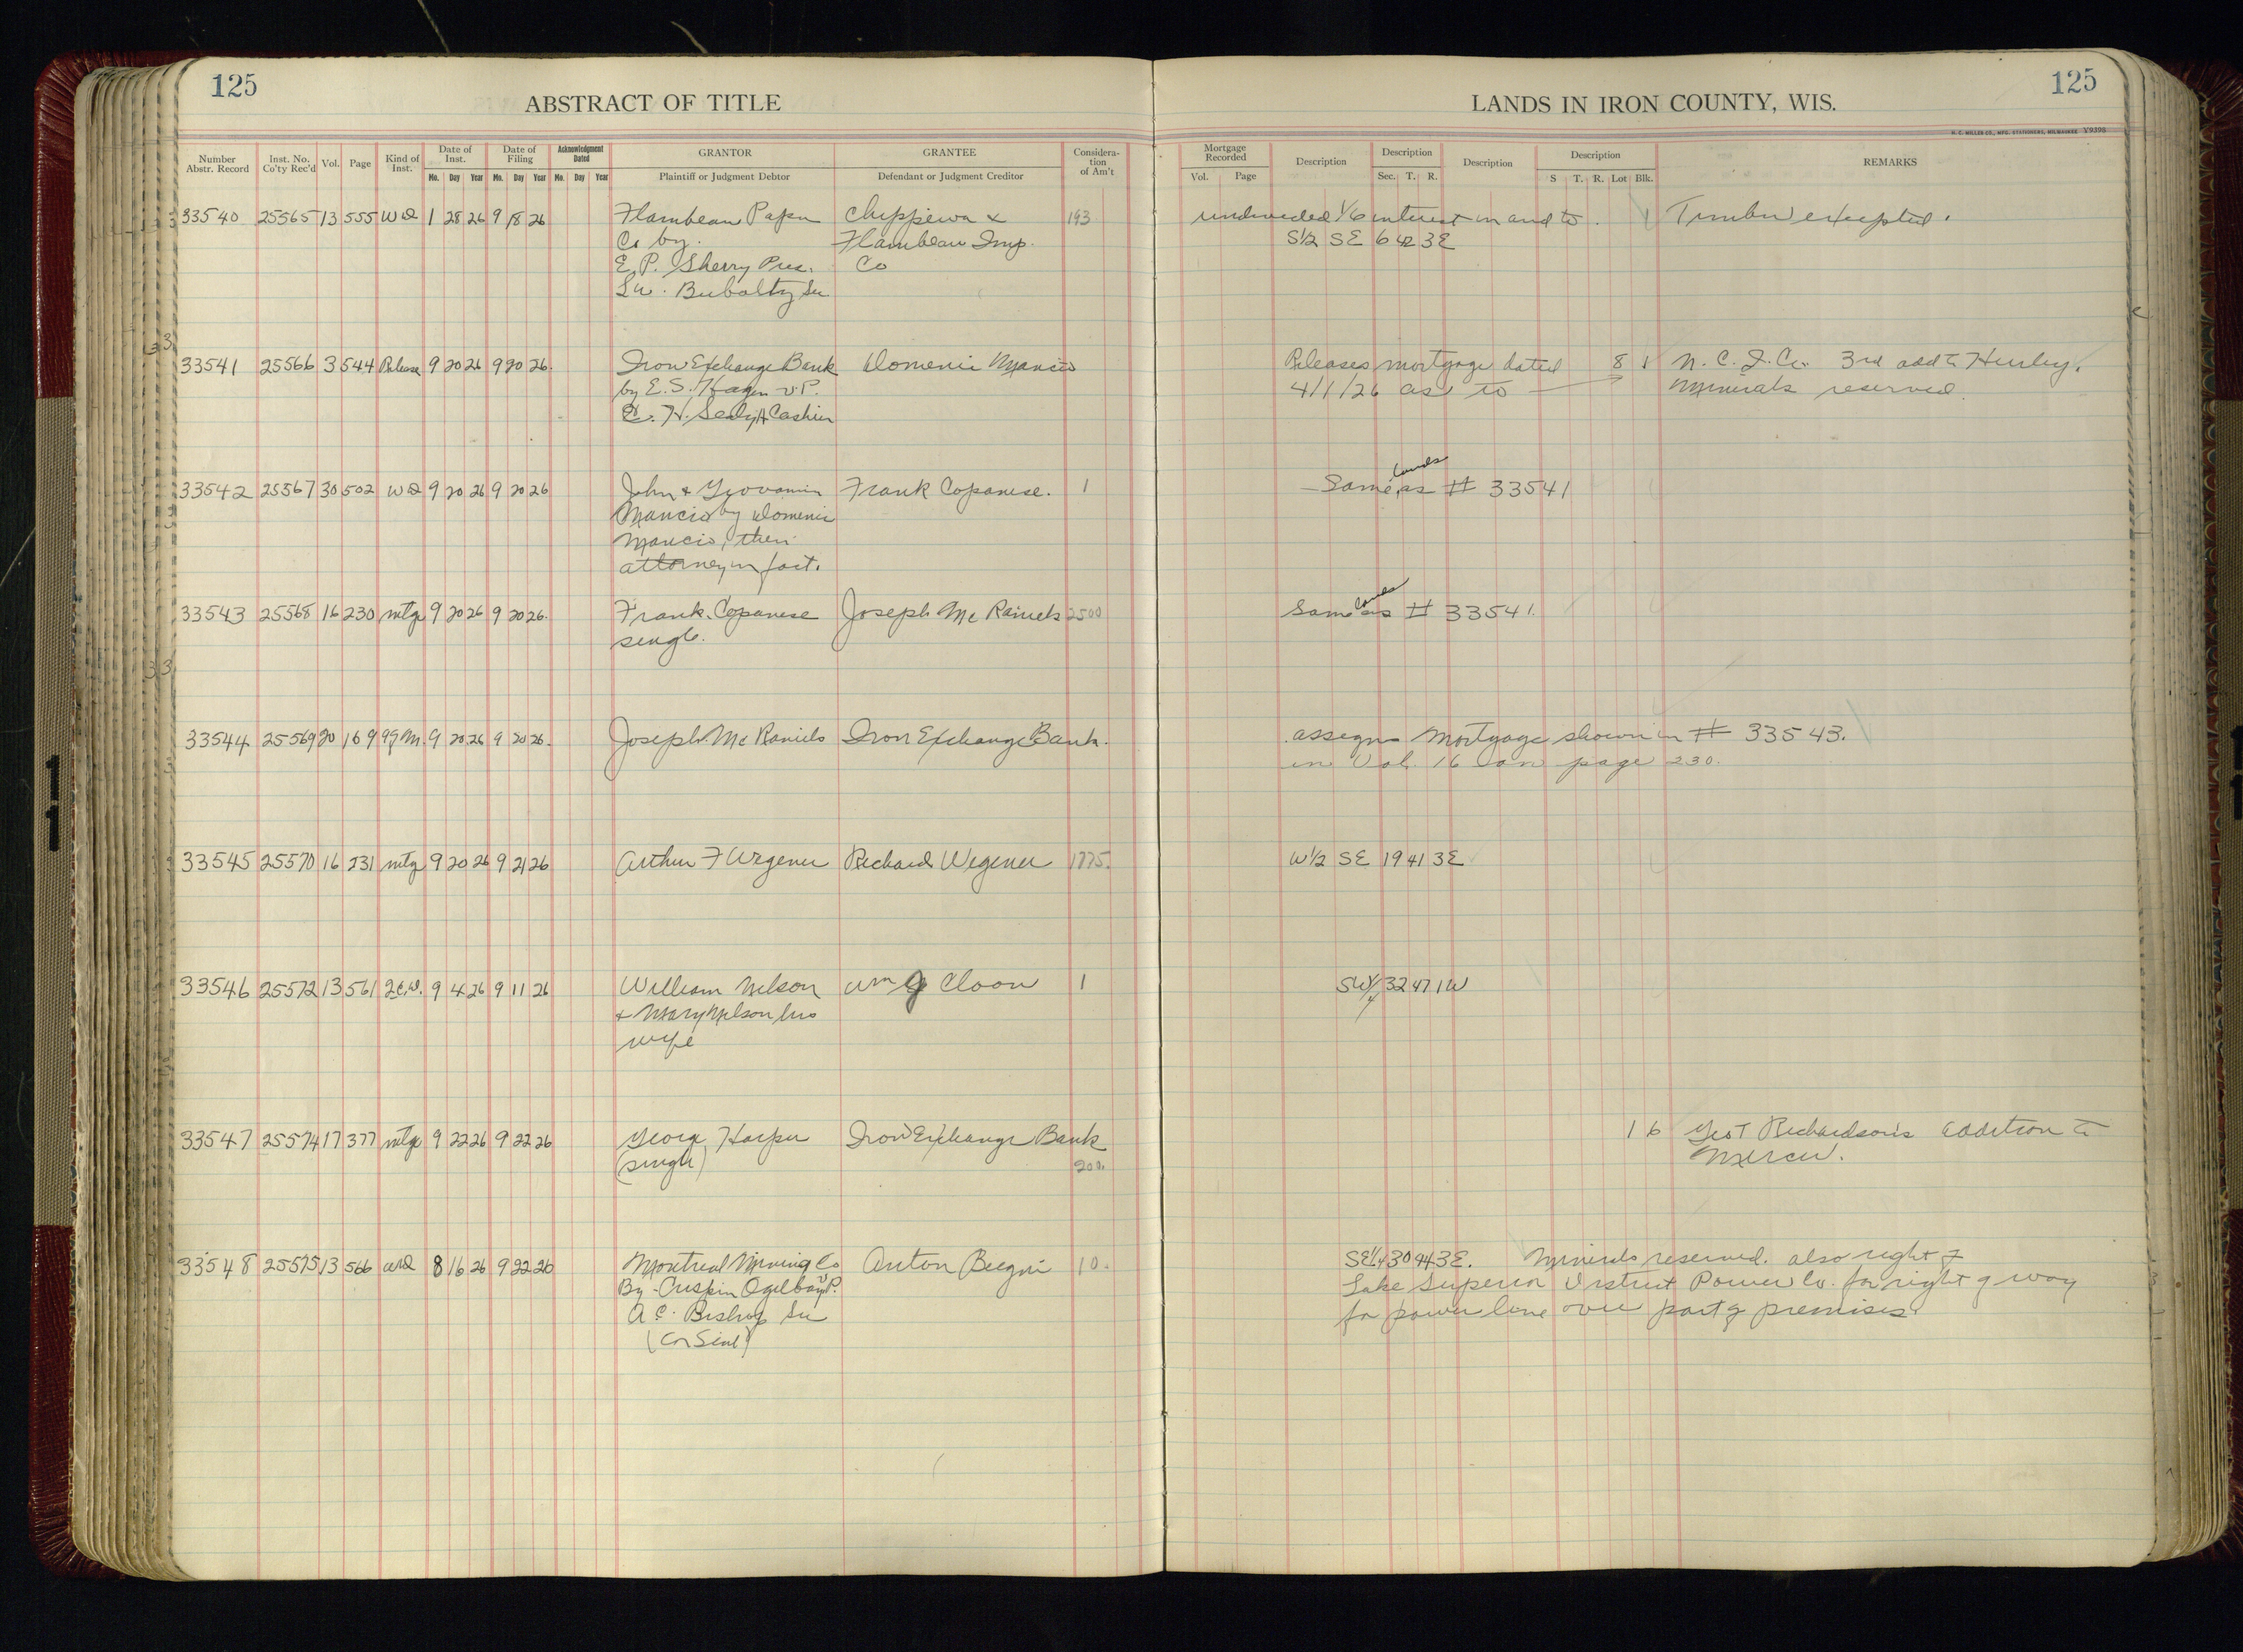 125
ABSTRACT OF TITLE
LANDS IN IRON COUNTY, WIS.
125
H. C. MILLER CO., MFG. STATIONERS, MILWAUKEE Y9398
Number Abstr. Record Inst. No. Co'ty Rec'd Vol. Page Kind of Inst. Date of Inst. Mo. Day Year Date of Filing Mo. Day Year Acknowledgment Dated Mo. Day Year GRANTOR Plaintiff or Judgment Debtor GRANTEE Defendant or Judgment Creditor Considera-tion of Am't
Mortgage Recorded Vol. Page Description Description Sec. T. R. Description Description S T. R. Lot Blk. REMARKS
33540 25565 13 555 WD 1 28 26 9 18 26 Flambeau Paper Chippewa & 193 undivided 1/6 interest in and to Timber excepted.
Co by. Flambeau Imp. S1/2 SE 6 42 3E
E. P. Sherry Pres. Co
33541 25566 3 544 Release 9 20 26 9 20 26. Iron Exchange Bank Domenic Mancio Releases mortgage dated 8 1 N. C. I. Co. 3rd add to Hurley.
by E. S. Hagen V P. 4/1/26 as to Minerals reserved.
H. Sealy A Cashier
33542 25567 30 502 WD 9 20 26 9 20 26 John & Giovannin Frank Copanese. 1 Same lands as # 33541
Mancio by Domenic
Mancio, their
attorney in fact.
33543 25568 16 230 mtg 9 20 26 9 20 26. Frank Copanese Joseph Mc Raniels 2500 Same lands as # 33541.
single.
33544 25569 20 169 ag M. 9 20 26 9 20 26. Joseph Mc Raniels Iron Exchange Bank. assigns Mortgage shown in # 33543.
in Vol. 16 on page 230.
33545 25570 16 231 mtg 9 20 26 9 21 26 Arthur F Wegener Richard Wegener 1775. W1/2 SE 19 41 3E
33546 25572 13 561 2.C.D. 9 4 26 9 11 26 William Nelson Wm G Cloon 1 SW1/4 32 47 1W
& Mary Nelson, his
wife
33547 25574 17 377 mtg 9 22 26 9 22 26 George Harper Iron Exchange Bank 1 6 Geo T Richardson's addition to
(single) 200. Mercer.
33548 25575 13 566 WD 8 16 26 9 22 26 Montreal Mining Co Anton 10. SE1/4 30 44 3E. Minerals reserved. also right of
By Crispin Oglebay V P. Lake Superior District Power Co. for right of way
A C. Bishop Sec for power line over part of premises
(Cor Seal)